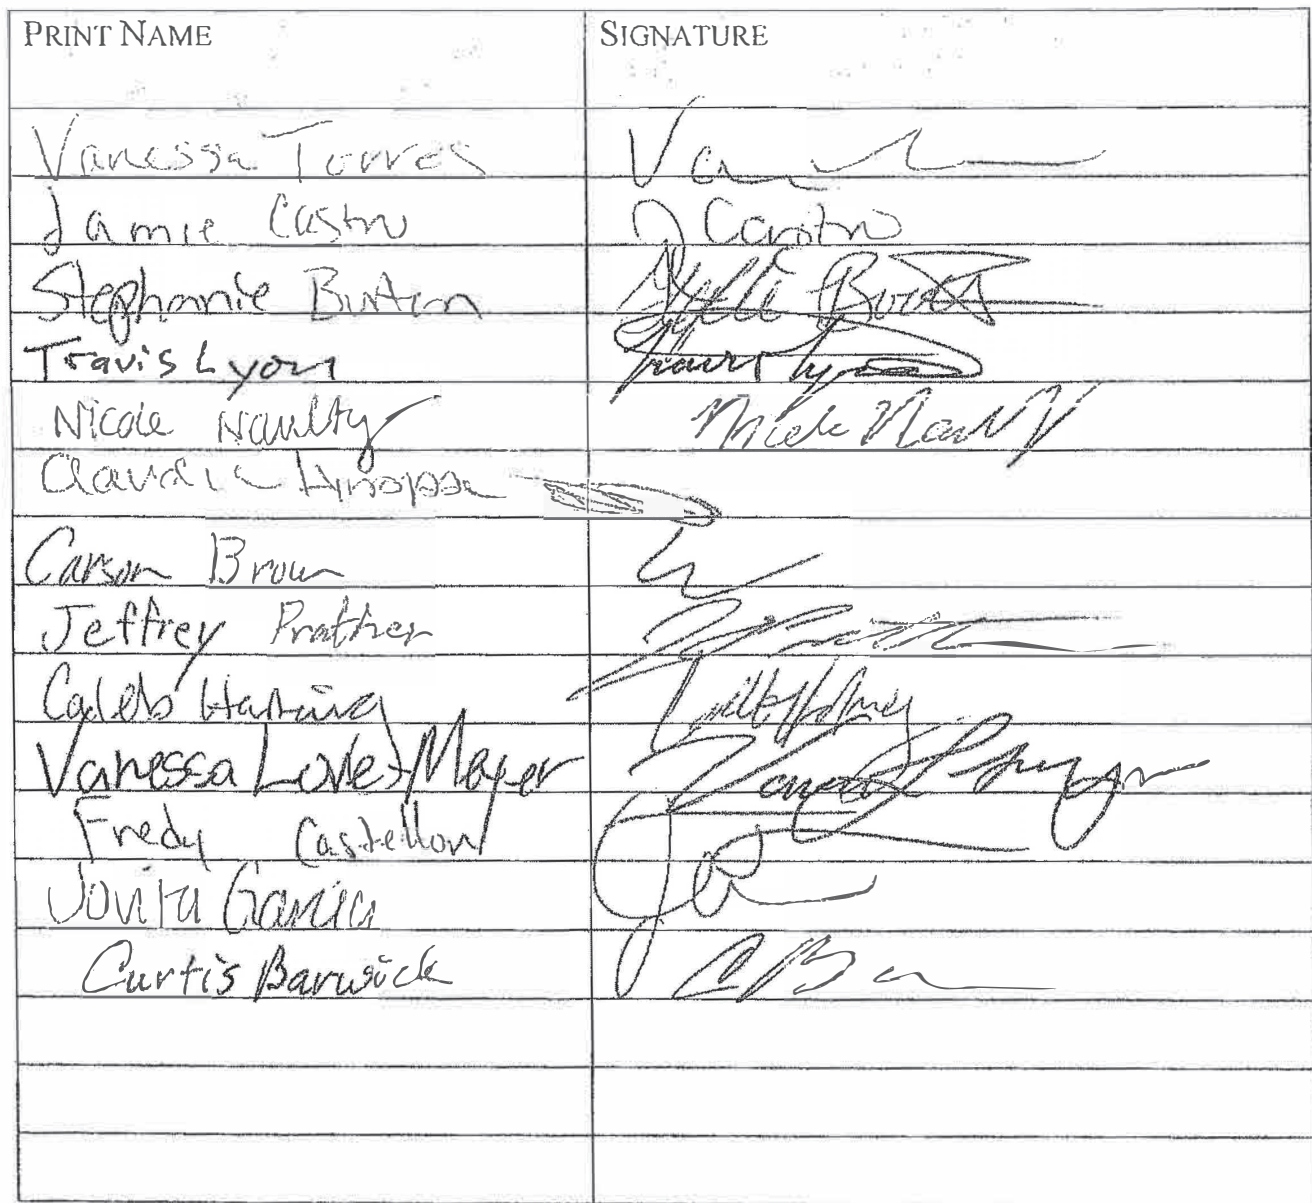 PRINT NAME SIGNATURE
Vanessa Torres
Jamie Castro J Castro
Stephanie Burton
Travis Lyon Travis Lyon
Nicole Naulty Nicole Naulty
Claudia Hinojosa
Carson Brown
Jeffrey Prather
Caleb Haring
Vanessa Lovet-Meyer
Fredy Castellon
Jovita Garcia
Curtis Barwick